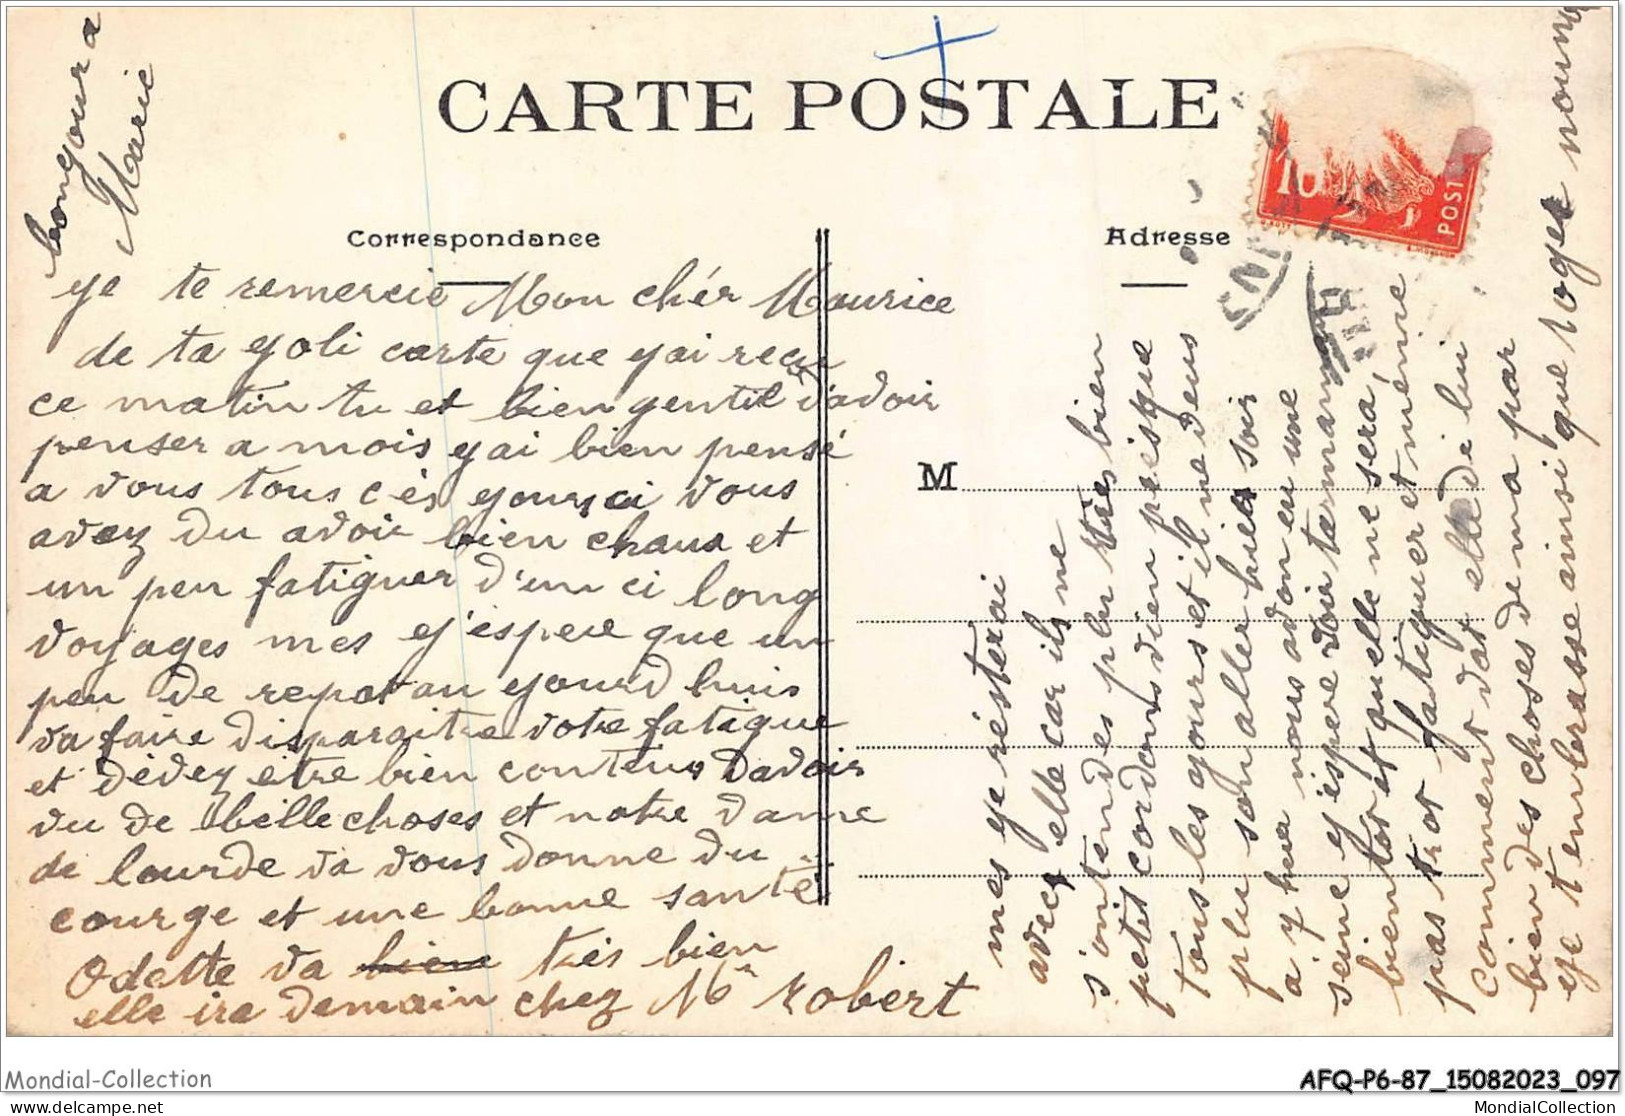 CARTE POSTALE
Correspondance
Adresse
M
10
POST
bongour a
Marie
ye te remercie Mon chér Maurice
de ta yoli carte que yai reçu
ce matin tu et bien gentil d'avoir
penser a mois yai bien pensé
a vous tous cès yours ci vous
avez du avoir bien chaux et
un peu fatiguer d'un ci long
voyages mes y'espere que un
peu de repot au yourd huis
va faire disparaitre votre fatigue
et dèvez être bien contens davoir
vu de belle choses et notre dame
de lourde va vous donne du
courge et une bonne santé
Odette va bien très bien
elle ira demain chez Mr robert
mes ye résterai
avec elle car ils ne
s'ontendes plu tres bien
petit cordons vien pesque
tous les yours et il ne veus
plu son aller hier soir
a 7 hure nous avon eu une
seine y'espere voir
bientot et quelle ne sera
pas trot fatiguer et mémère
comment vat elle di lui
bien des choses de ma par
eye t'enbrasse ainsi que roger nounou
Mondial-Collection
AFQ-P6-87_15082023_097
www.delcampe.net
MondialCollection